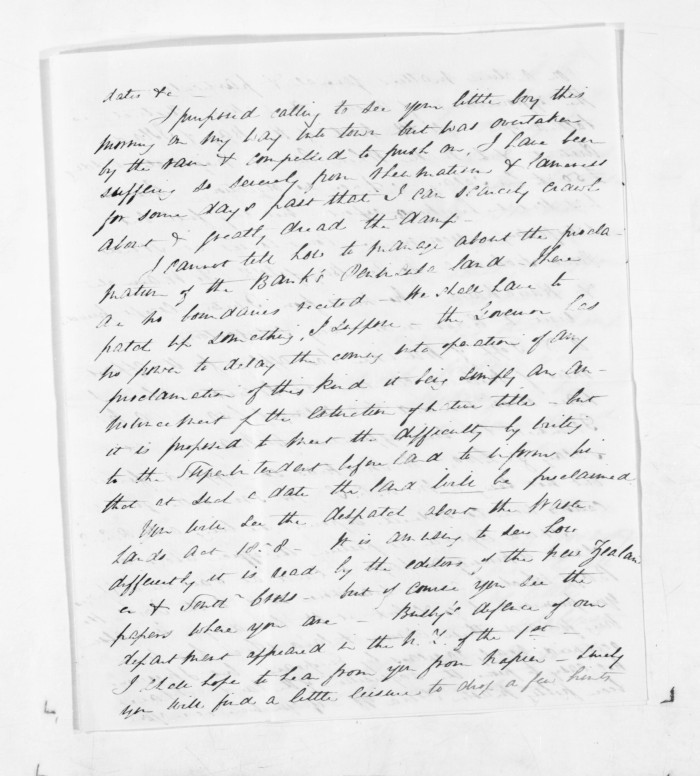 dates &c —
I purposed calling to see your little boy this
morning on my way into town but was overtaken
by the rain & compelled to push on. I have been
suffering so severely from rheumatism & lameness
for some days past that I can scarcely crawl
about & greatly dread the damp —
I cannot tell how to manage about the procla-
mation of the Bank's Peninsula land There
are no boundaries recited — We shall have to
patch up something, I suppose — the Governor has
no power to delay the coming into operation of any
proclamation of this kind it being simply an an-
nouncement of the extinction of native title — but
it is proposed to meet the difficulty by writing
to the Superintendent beforehand to inform him
that at such a date the land will be proclaimed
You will see the despatch about the Waste
Lands Act 1858 — It is amusing to see how
differently it is read by the editors of the New Zealan
er & South<sup>n</sup> Cross — but of course you see the
papers where you are — Busby's defence of our
department appeared in the N.Z. of the 1st —
I shall hope to hear from you from Napier — Surely
you will find a little leisure to drop a few hints